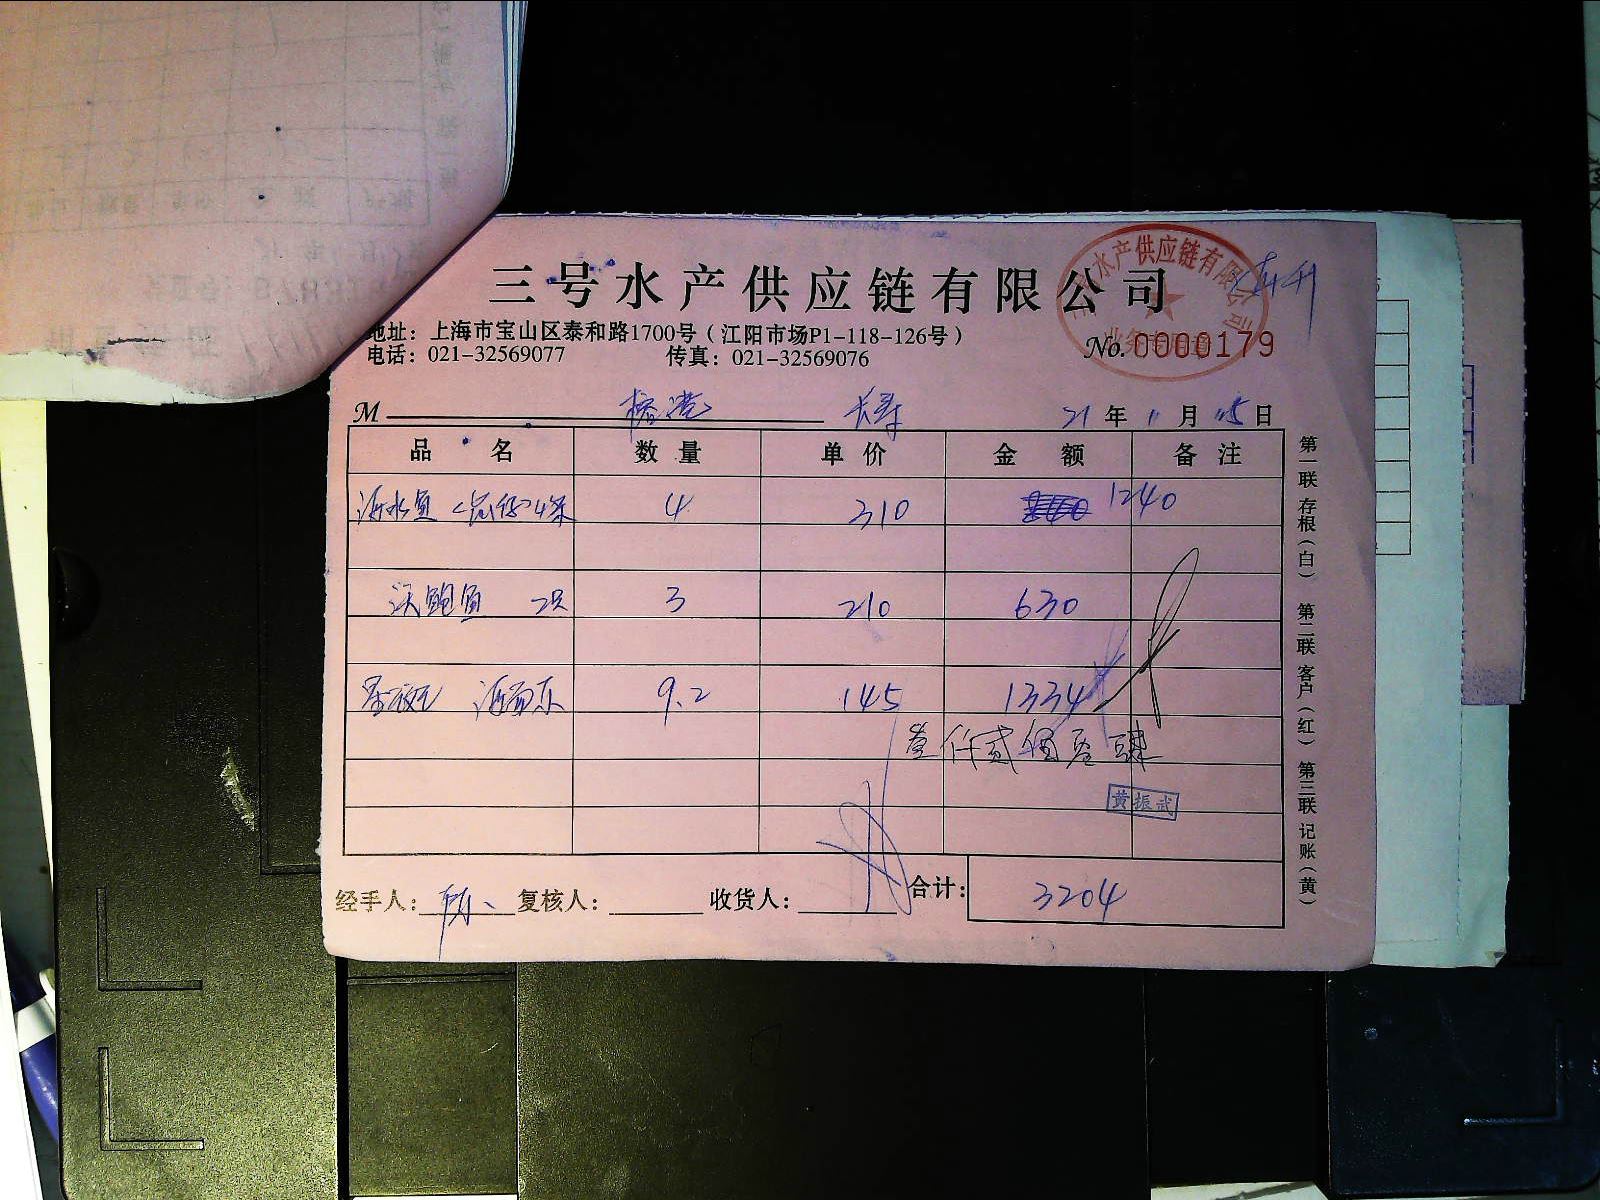 三号水产供应链有限公司
水产供应链有限公司
地址：上海市宝山区泰和路1700号（江阳市场P1-118-126号）
电话：021-32569077 传真：021-32569076
No. 0000179
M 榕港 长寿 21年11月15日
品名 数量 单价 金额 备注
海水鱼 4条 4 310 1240
沃鲍鱼 2只 3 210 630
9.2 145 1334
叁仟贰佰零肆
黄振武
经手人： 复核人： 收货人： 合计： 3204
第一联 存根（白） 第二联 客户（红） 第三联 记账（黄）